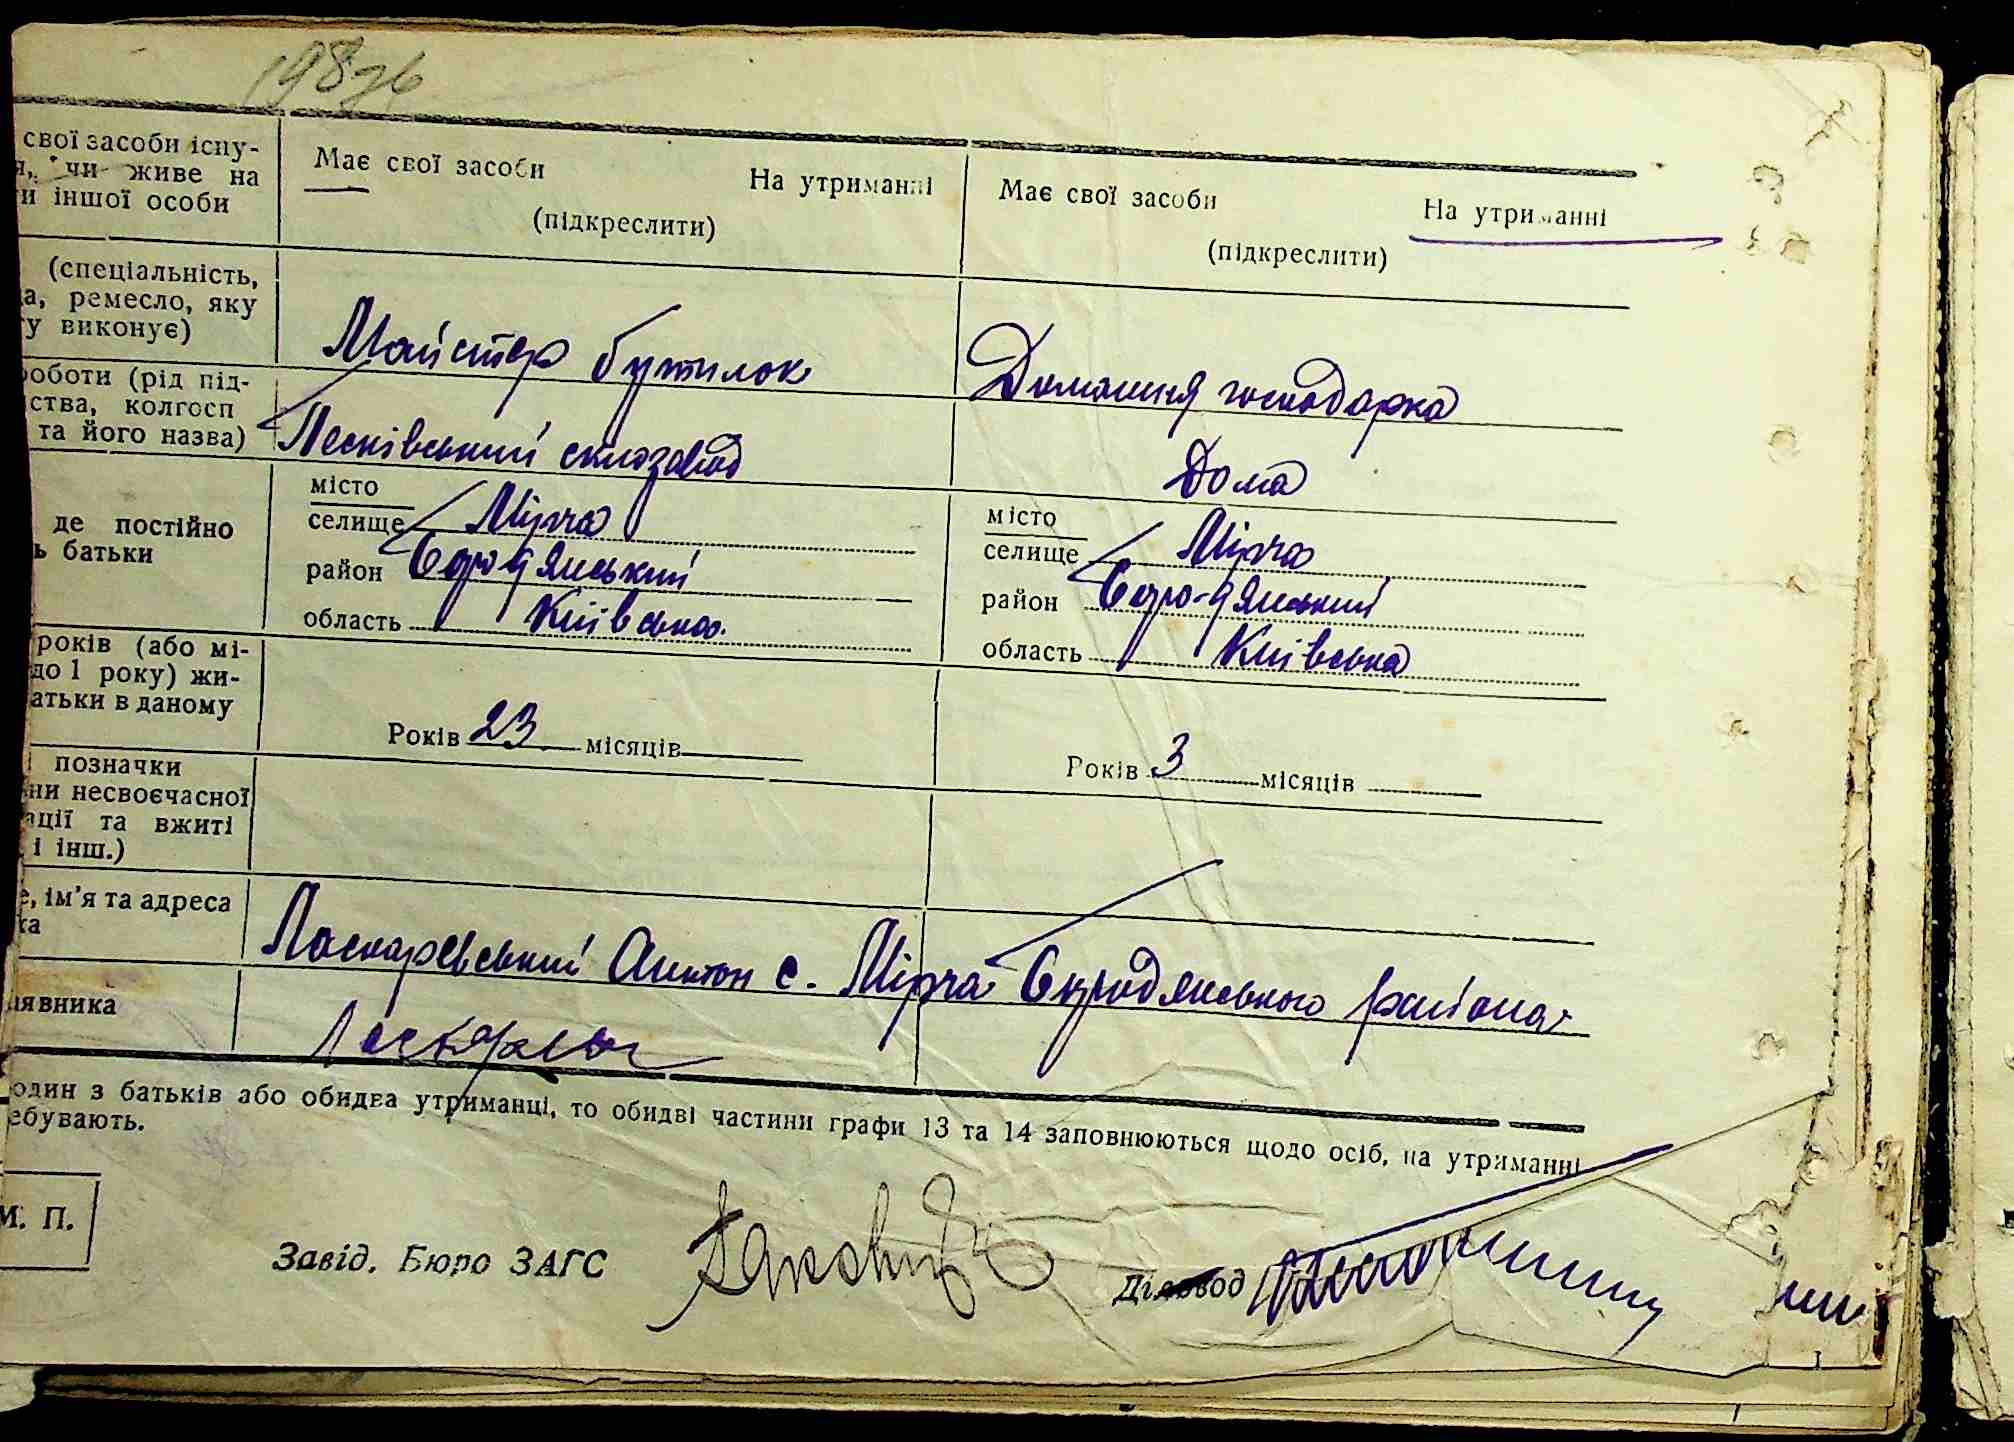 198 зв
свої засоби існу-
я, чи живе на
и іншої особи
Має свої засоби На утриманні
(підкреслити)
Має свої засоби На утриманні
(підкреслити)
(спеціальність,
а, ремесло, яку
у виконує)
Майстер бутилок
Домашня господарка
роботи (рід під-
ства, колгосп
та його назва)
Песківський склозавод
Дома
де постійно
ь батьки
місто
селище Мірча
район Бородянський
область Київська
місто
селище Мірча
район Бородянський
область Київська
років (або мі-
до 1 року) жи-
атьки в даному
Років 23 місяців
Років 3 місяців
позначки
ни несвоєчасної
ації та вжиті
і інш.)
е, ім'я та адреса
ка
Ласкаревський Антон с. Мірча Бородянського района
явника
один з батьків або обидва утриманці, то обидві частини графи 13 та 14 заповнюються щодо осіб, на утриманні
ебувають.
М. П.
Завід. Бюро ЗАГС
Діловод